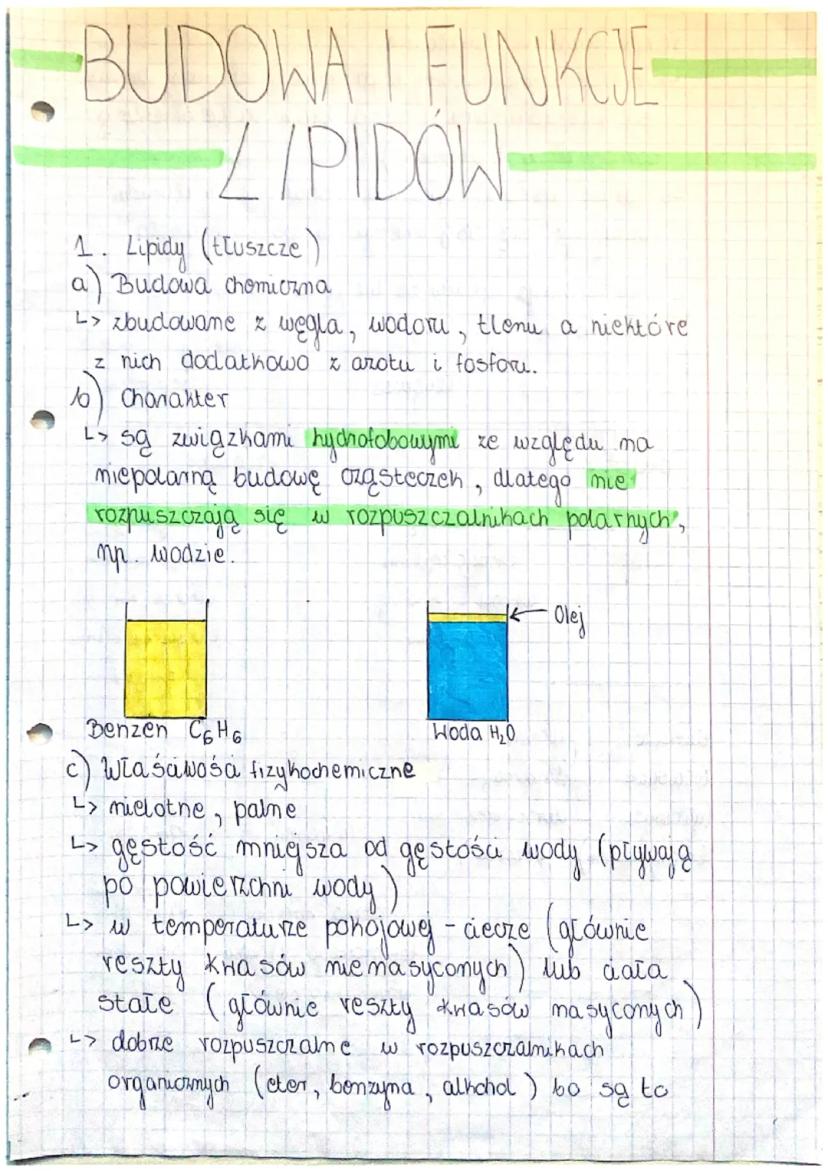 BUDOWA I FUNKCJE
LIPIDÓW
1. Lipidy (tłuszcze)
a) Budowa chemiczna
↳ zbudowane z węgla, wodoru, tlenu a niektóre
z nich dodatkowo z azotu i fosforu.
b) Charakter
↳ są związkami hydrofobowymi ze względu na
niepolarną budowę cząsteczek, dlatego nie
rozpuszczają się w rozpuszczalnikach polarnych,
np. wodzie.
Olej
Benzen C₆H₆
Woda H₂O
c) Właściwości fizykochemiczne
↳ nielotne, palne
↳ gęstość mniejsza od gęstości wody (pływają
po powierzchni wody)
↳ w temperaturze pokojowej - ciecze (głównie
reszty kwasów nienasyconych) lub ciała
stałe (głównie reszty kwasów nasyconych)
↳ dobrze rozpuszczalne w rozpuszczalnikach
organicznych (eter, benzyna, alkohol) bo są to